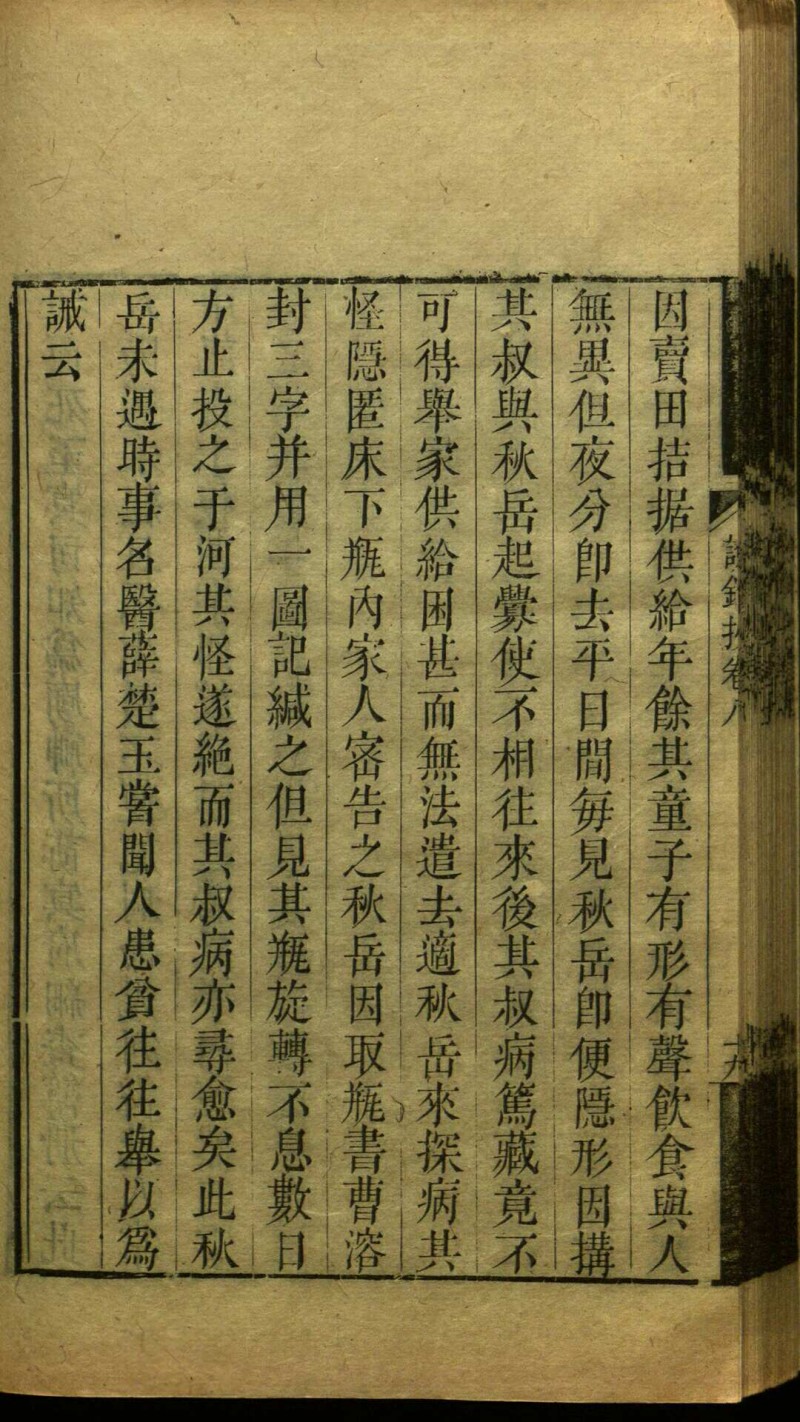 因賣田拮据供給年餘其童子有形有聲飲食與人
無異但夜分卽去平日間每見秋岳卽便隱形因搆
其叔與秋岳起釁使不相往來後其叔病篤藏竟不
可得舉家供給困甚而無法遣去適秋岳來探病其
怪隱匿床下瓶內家人密告之秋岳因取瓶書曹溶
封三字并用一圖記緘之但見其瓶旋轉不息數日
方止投之于河其怪遂絶而其叔病亦尋愈矣此秋
岳未遇時事名醫薛楚玉嘗聞人患貧往往舉以爲
誡云